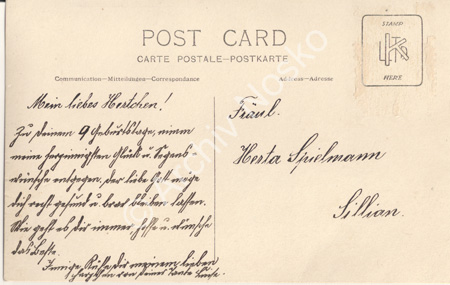 POST CARD
CARTE POSTALE—POSTKARTE
Communication—Mitteilungen—Correspondance
Address—Adresse
STAMP
HERE
Mein liebes Hertchen!
Zu Deinem 9 Geburtstage, nimm
meine herzinnigsten Glück u. Segens-
wünsche entgegen, der liebe Gott möge
dich recht gesund u. brav bleiben lassen.
Wie geht es dir immer, hoffe u. wünsche
das Beste.
Innige Küsse dir meinem lieben
herzerl von deiner Tante
Fräul.
Herta Spielmann
Sillian.